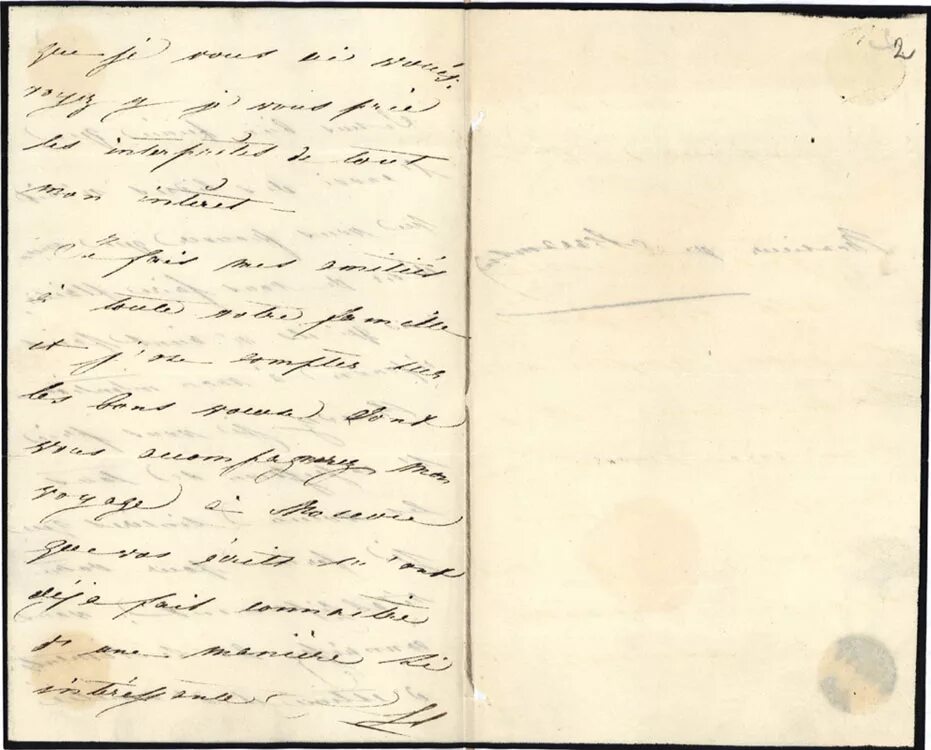 que je vous ai
voyez y je vous prie
les interprètes de tout
mon intérêt
Je fais mes amitiés
à toute votre famille
et j'ose compter sur
les bons voeux dont
vous accompagnerez mon
voyage à Moscou
que vos écrits m'ont
déjà fait connaitre
d'une manière si
intéressante
2